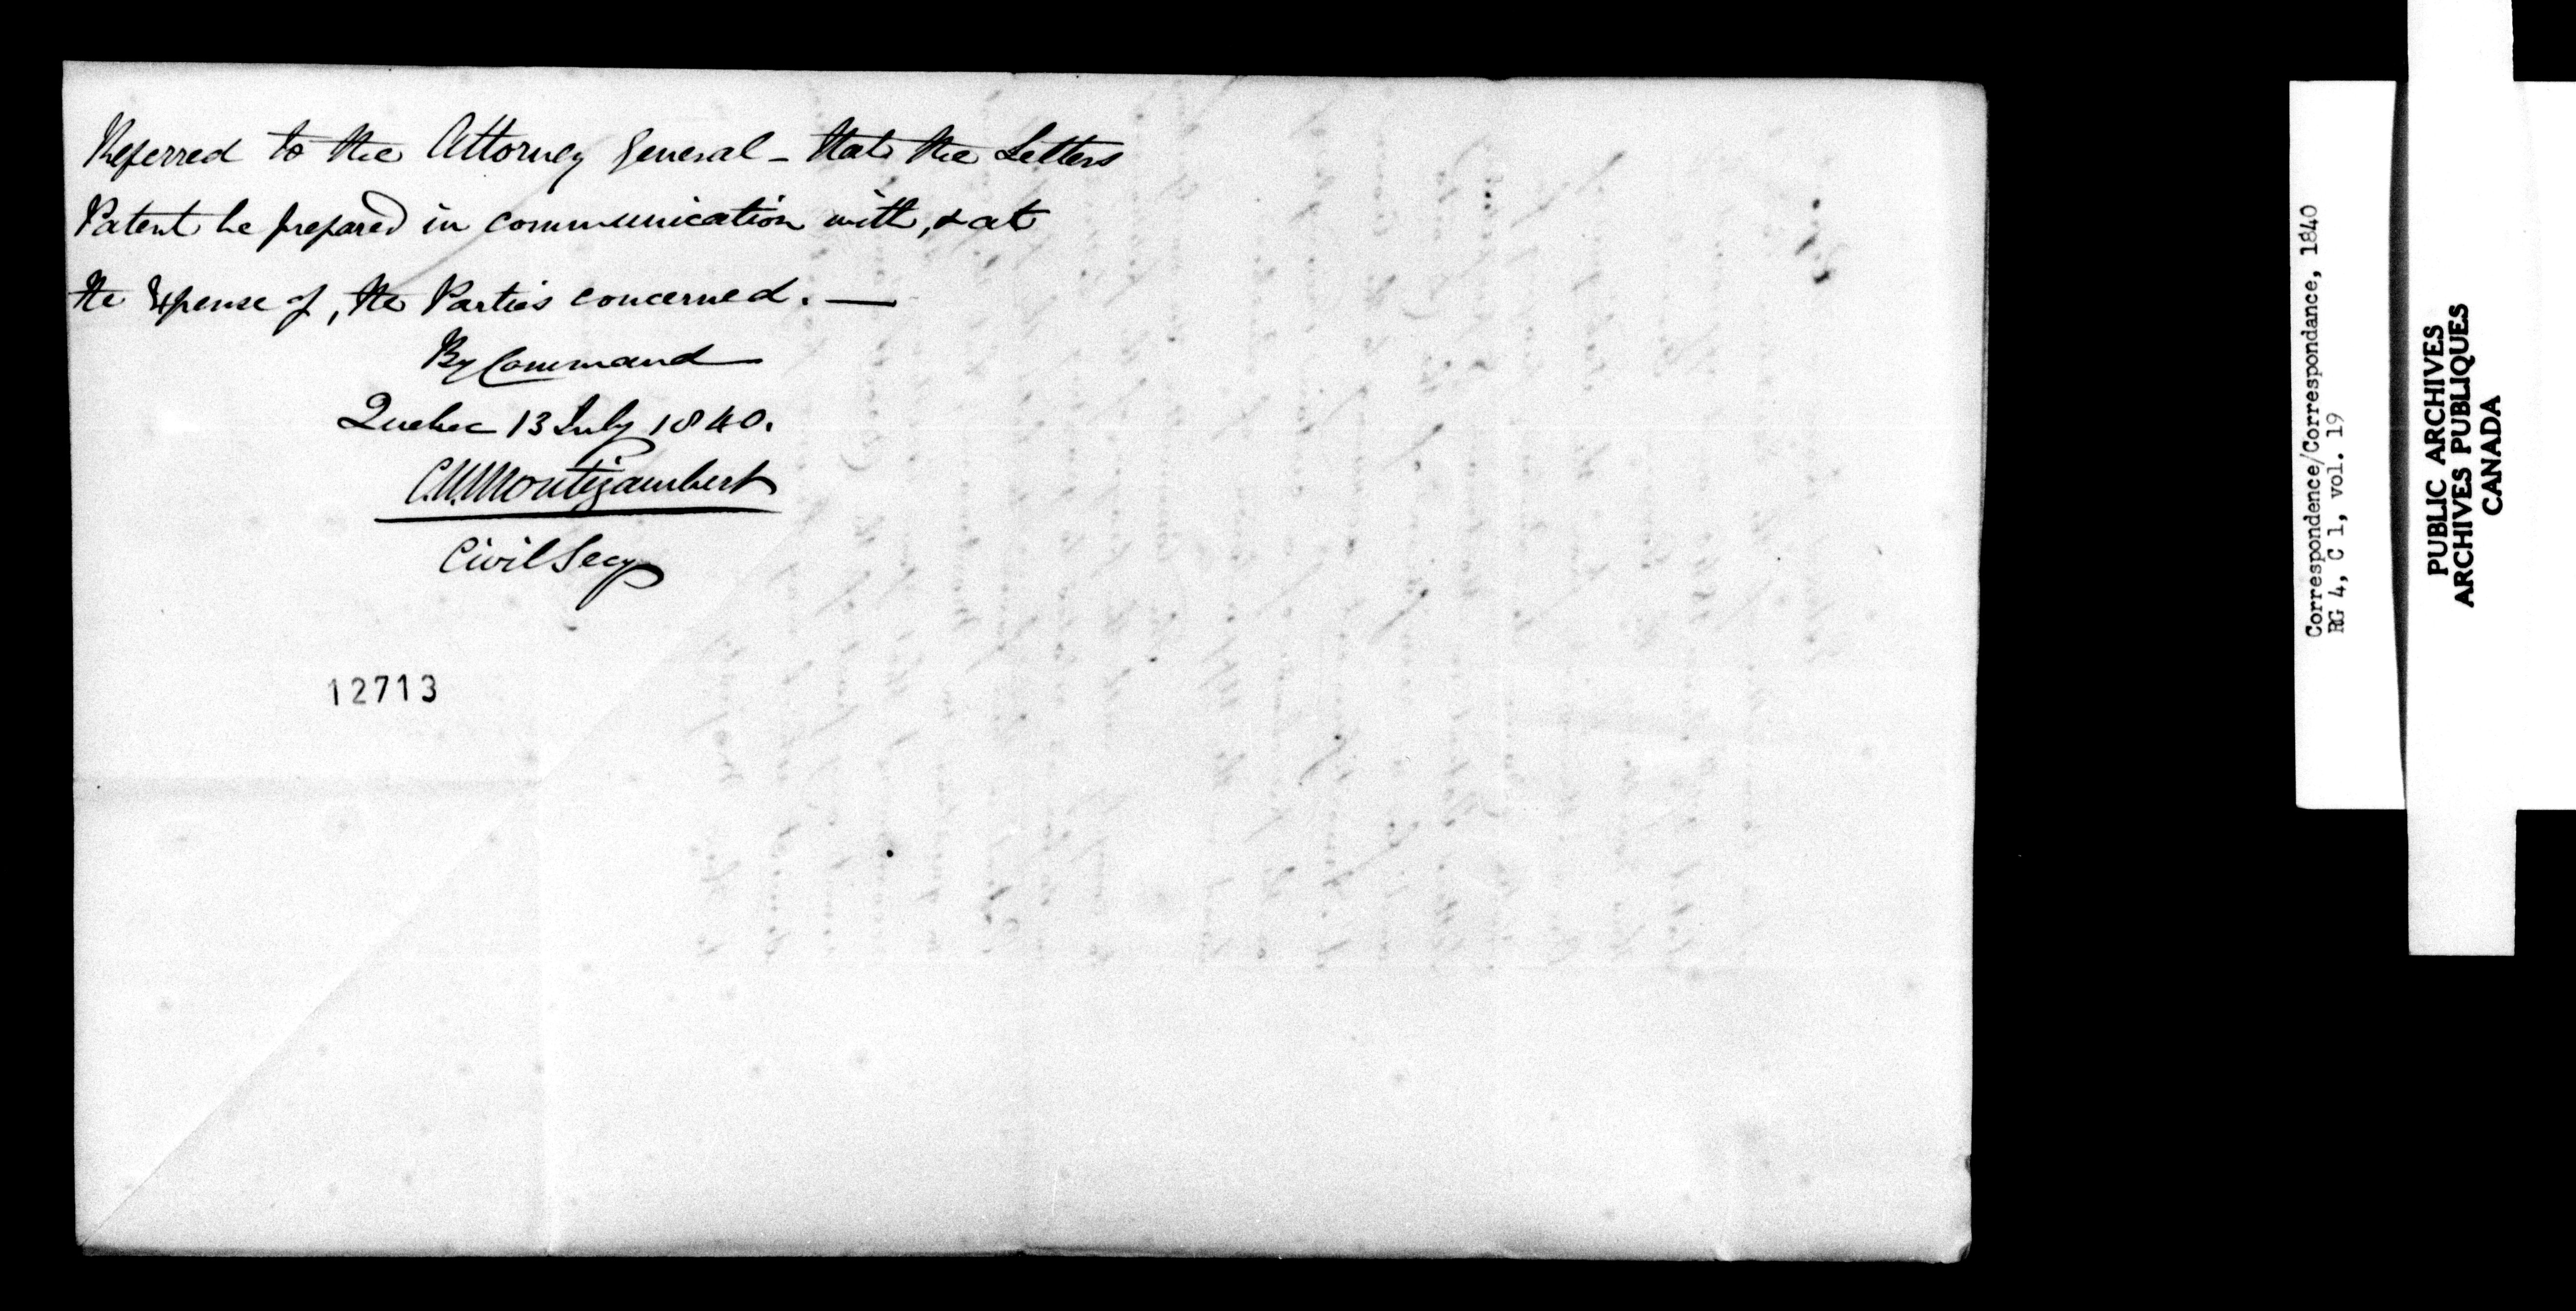 Referred to the Attorney General - that the Letters
Patent be prepared in communication with, & at
the Expense of, the Parties concerned. —
By Command
Quebec 13 July 1840.
Montizambert
Civil Secy
12713
Correspondence/Correspondance, 1840
RG 4, C 1, vol. 19
PUBLIC ARCHIVES
ARCHIVES PUBLIQUES
CANADA